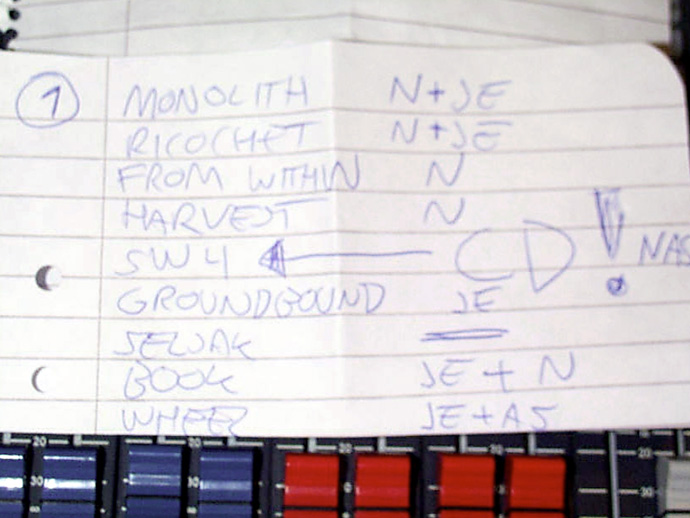 1 MONOLITH N+JE
RICOCHET N+JE
FROM WITHIN N
HARVEST N
SW4 ← CD ! NAS
GROUNDBOUND JE
BOOK JE + N
WHEEL JE+AS
20 20 20 20
30 30 30